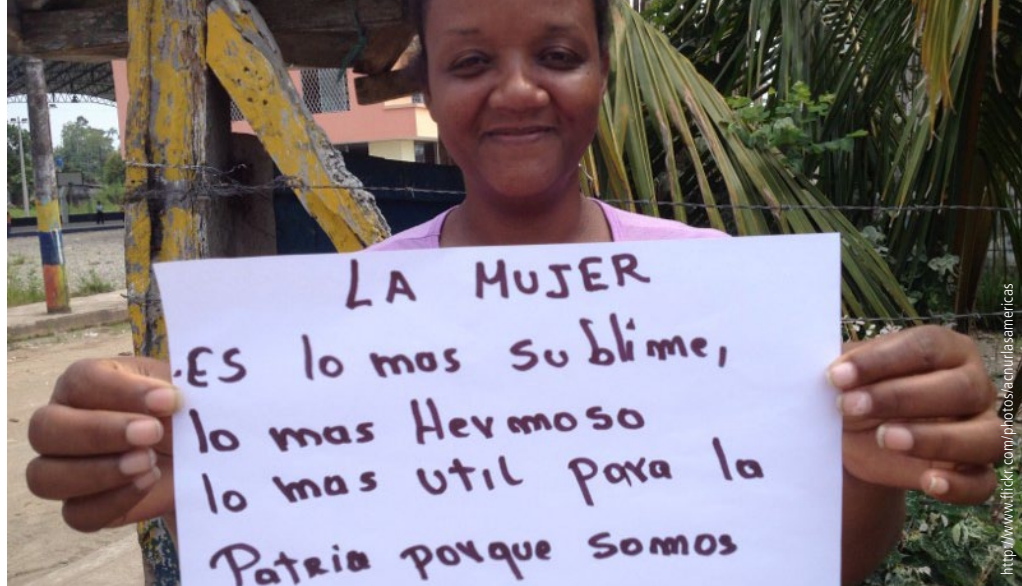 LA MUJER
.ES lo mas sublime,
lo mas Hermoso
lo mas util para la
Patria porque somos
http://www.flickr.com/photos/acnurlasamericas